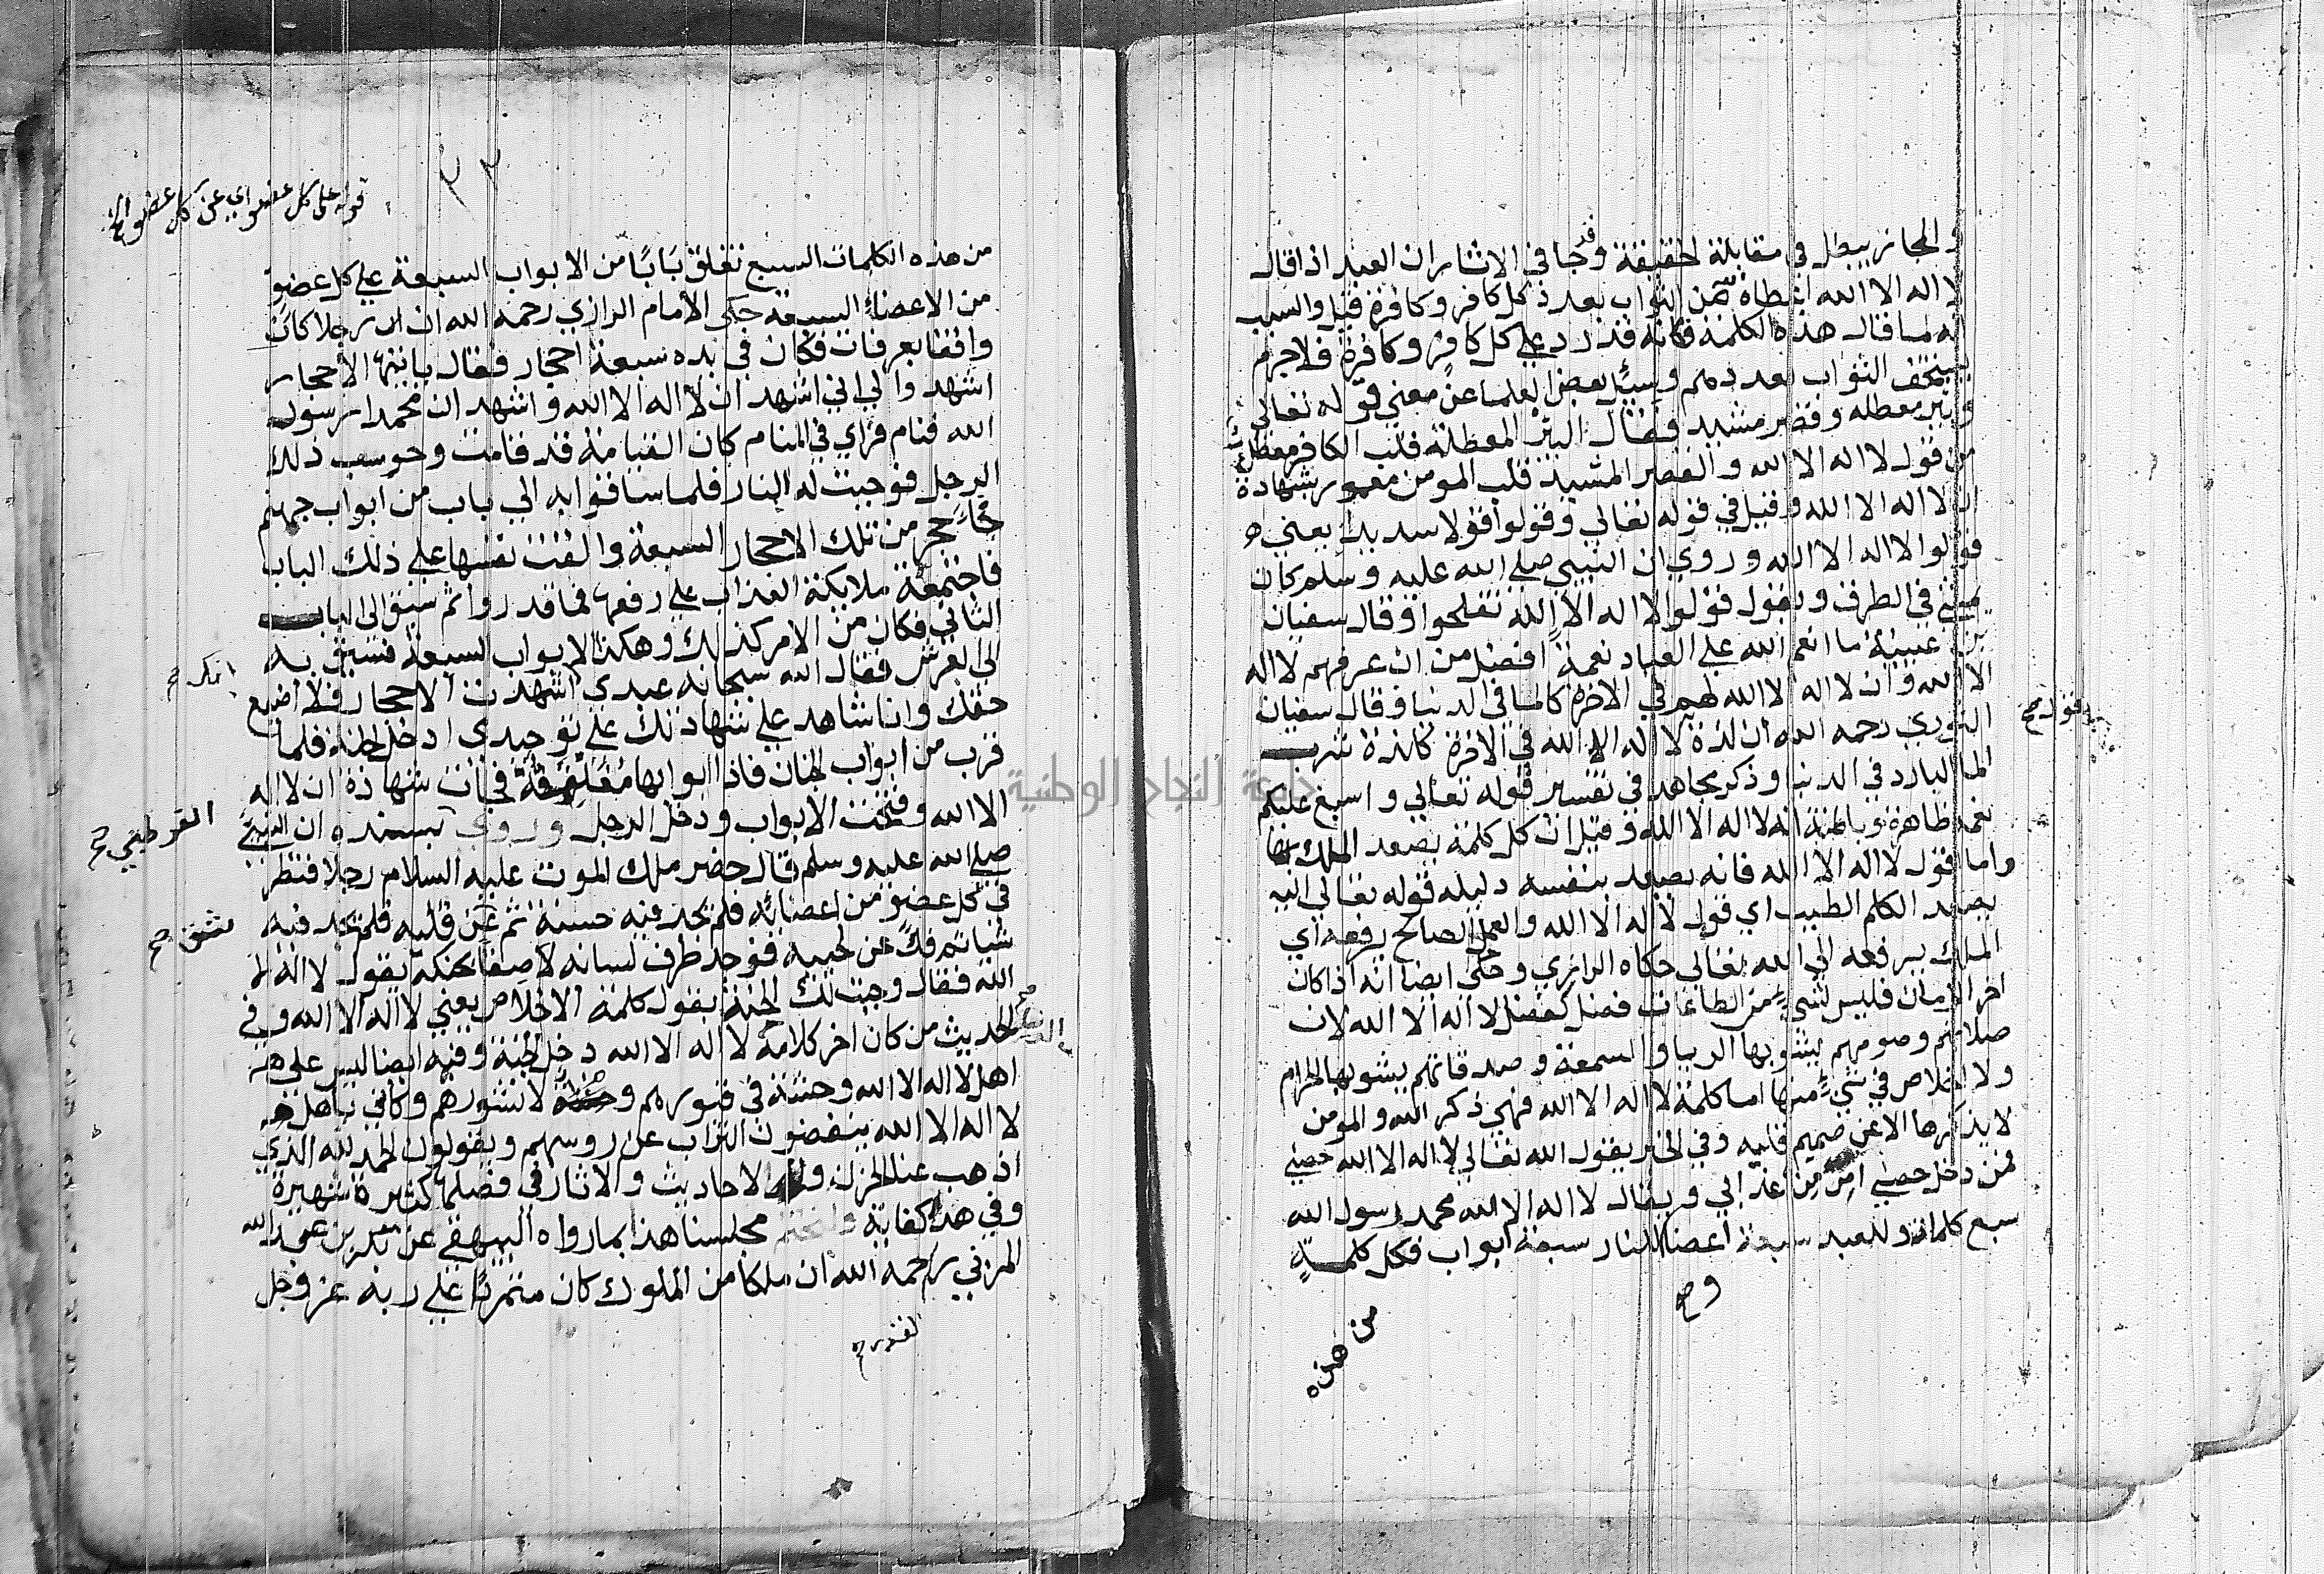 والمجاز يبطل في مقابلة الحقيقة وقد جا في الاثار ان العبد اذا قال
لا اله الا الله اعطاه من الثواب بعدد كل كافر وكافرة قيل والسبب
انه لما قال هذه الكلمة فكانه قد رد علي كل كافر وكافرة فلاجرم
يستحق الثواب بعددهم وسئل بعض العلما عن معني قوله تعالي
وبير معطله وقصر مشيد فقال البئر المعطلة قلب الكافر معطل
من قول لا اله الا الله والقصر المشيد قلب المومن معمور بشهادة
ان لا اله الا الله وقيل في قوله تعالي وقولوا قولا سديدا يعني
قولوا لا اله الا الله وروي ان النبي صلي الله عليه وسلم كان
يمشي في الطرق ويقول قولوا لا اله الا الله تفلحوا وقال سفيان
بن عيينة ما انعم الله علي العباد نعمة افضل من ان عرفهم لا اله
الا الله وان لا اله الا الله لهم في الاخرة كالما في الدنيا وقال سفيان
الثوري رحمه الله ان لذة لا اله الا الله في الاخرة كلذة شرب
الما البارد في الدنيا وذكر مجاهد في تفسير قوله تعالي واسبغ عليكم
نعمه ظاهرة وباطنة انه لا اله الا الله وقيل ان كل كلمة يصعد الملك بها
واما قول لا اله الا الله فانه يصعد بنفسه دليله قوله تعالي اليه
يصعد الكلم الطيب اي قول لا اله الا الله والعمل الصالح يرفعه اي
الملك يرفعه الي الله تعالي حكاه الرازي وحكي ايضا انه اذا كان
اخر الزمان فليس لشيء من الطاعات فضل كفضل لا اله الا الله لان
صلاتهم وصومهم يشوبها الريا والسمعة وصدقاتهم يشوبها الحرام
ولا اخلاص في شيء منها اما كلمة لا اله الا الله فهي ذكر الله والمومن
لا يذكرها الا عن صميم قلبه وفي الخبر يقول الله تعالي لا اله الا الله حصني
فمن دخل حصني امن من عذابي ويقال لا اله الا الله محمد رسول الله
سبع كلمات وللعبد سبعة اعضا وللنار سبعة ابواب فكل كلمة
من هذه
قوله على كل عضو اي عن كل عضو الخ
من هذه الكلمات السبع تغلق بابا من الابواب السبعة علي كل عضو
من الاعضاء السبعة حكي الامام الرازي رحمه الله ان رجلا كان
واقفا بعرفات فكان في يده سبعة احجار فقال يا ايتها الاحجار
اشهدوا لي اني اشهد ان لا اله الا الله واشهد ان محمدا رسول
الله فنام فراي في المنام كان القيامة قد قامت وحوسب ذلك
الرجل فوجبت له النار فلما ساقوا به الي باب من ابواب جهنم
جاء حجر من تلك الاحجار السبعة والقت نفسها علي ذلك الباب
فاجتمعة ملايكة العذاب علي رفعها فما قدروا ثم سيق الى الباب
الثاني فكان من الامر كذلك وهكذا الابواب السبعة فسيق به
الي العرش فقال الله سبحانه عبدي اشهدت الاحجار فلا اضيع
حقك وانا شاهد علي شهادتك علي توحيدي ادخل الجنة فلما
قرب من ابواب الجنان فاذا ابوابها مغلقة فجات شهادة ان لا اله
الا الله وفتحت الابواب ودخل الرجل وروي بسنده ان النبي
القرطبي صح
صلي الله عليه وسلم قال حضر ملك الموت عليه السلام رجلا فنظر
في كل عضو من اعضائه فلم يجد فيه حسنة ثم عن قلبه فلم يجد فيه
شق صح
شيا ثم فك عن لحييه فوجد طرف لسانه لاصقا بحنكه يقول لا اله الا
الله فقال وجبت لك الجنة بقول كلمة الاخلاص يعني لا اله الا الله وفي
الحديث من كان اخر كلامه لا اله الا الله دخل الجنة وفيه ايضا ليس علي
اهل لا اله الا الله وحشة في قبورهم ولا نشورهم وكاني باهل
لا اله الا الله ينفضون التراب عن روسهم ويقولون الحمد لله الذي
اذهب عنا الحزن والاحاديث والاثار في فضلها كثيرة شهيرة
وفي هذا كفاية ولنختم مجلسنا هذا بما رواه البيهقي عن بكر بن عبد الله
المزني رحمه الله ان ملكا من الملوك كان متمردا علي ربه عز وجل